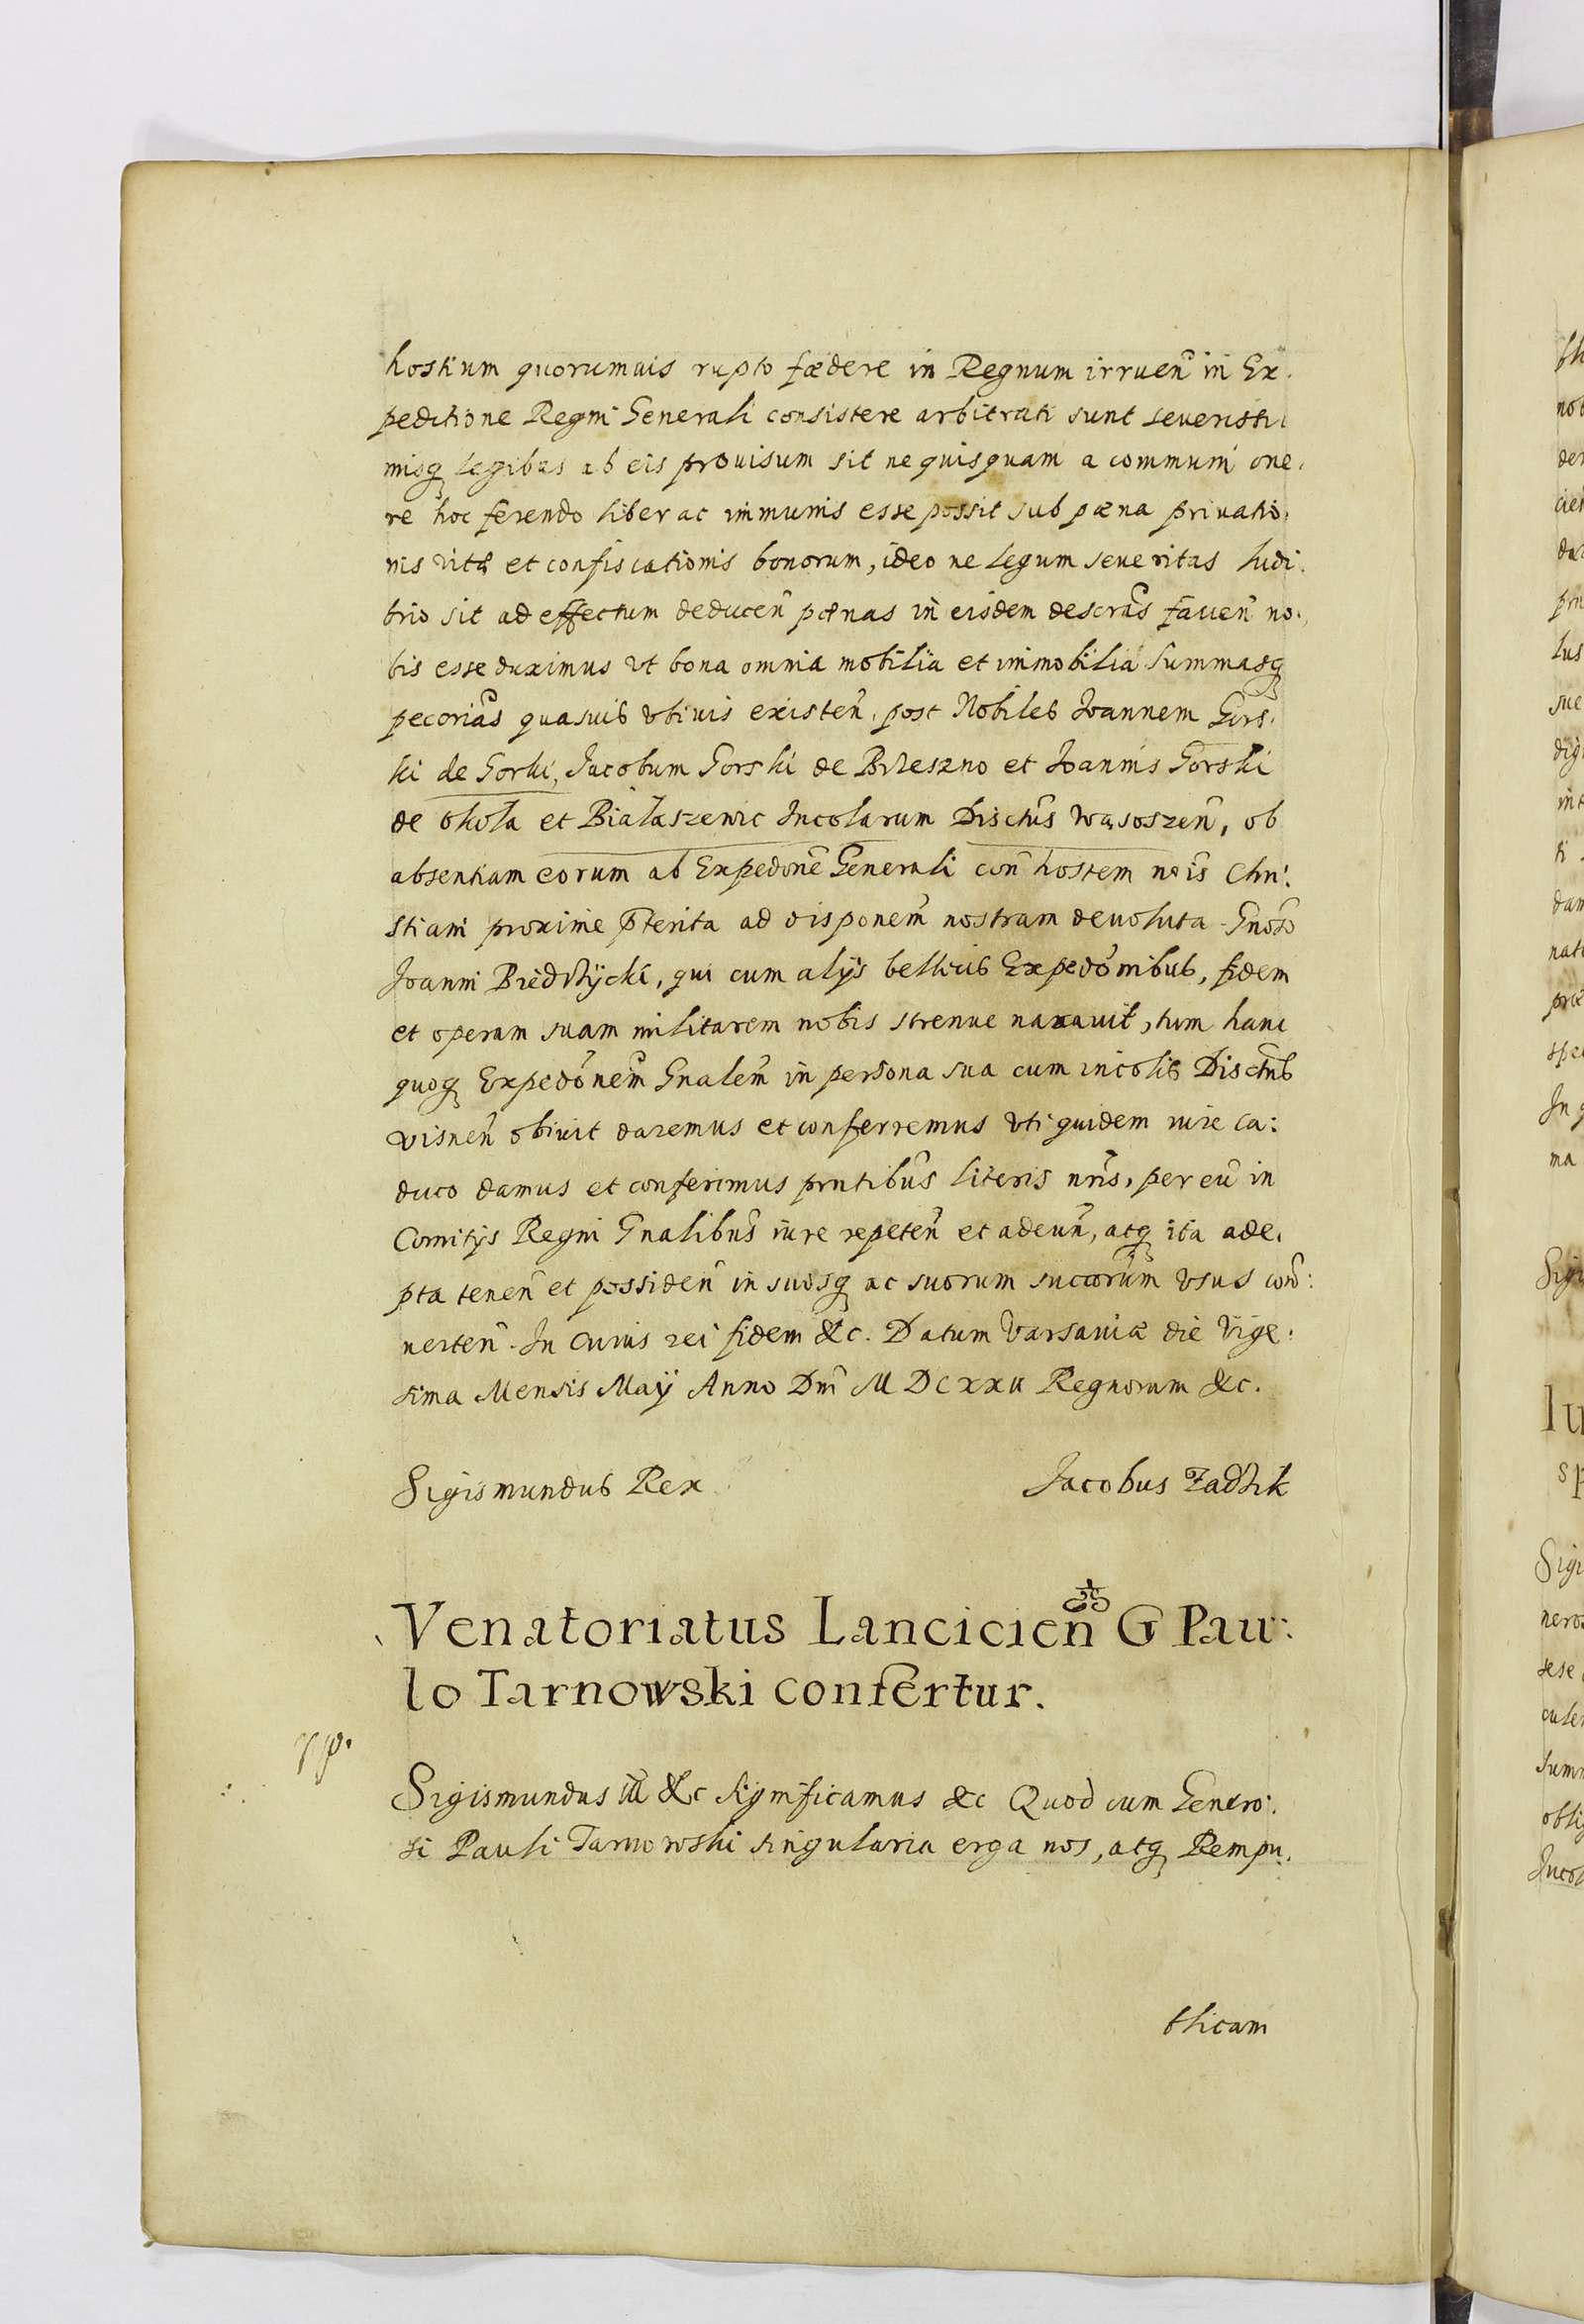 hostium quorumuis rupto fædere in Regnum irruen̄ in Ex.
peditione Regni Generali consistere arbitrati sunt seuerissi
misq legibus ab eis prouisum sit ne quisquam a communi one.
re hoc ferendo liber ac immunis esse possit sub pæna priuatio.
nis vitæ et confiscationis bonorum, ideo ne legum seueritas ludi.
brio sit ad effectum deducen̄ pænas in eisdem descrās fauen̄ no.
bis esse duximus vt bona omnia mobilia et immobilia summasq
pecoriās quasuis vbiuis existen̄. post Nobiles Joannem Gors.
ki de Gorki, Jacobum Gorski de Brzeszno et Joannis Gorski
de okola et Białaszewic Incolarum Disctūs wąsoszen̄, ob
absentiam eorum ab Expedōne Generali con̄ hostem nōis Chri:
stiani proxime p̄terita ad disponem̄ nostram deuoluta Gnōso
Joanni Biedrzÿcki, qui cum alÿs bellicis Expedōnibus, fidem
et operam suam militarem nobis strenue nauauit, tum hanc
quoq Expedōnem̄ Gnalem̄ in persona sua cum incolis Disctūs
visnen̄ obiuit daremus et conferremus vti quidem iure ca:
duco damus et conferimus prntibūs literis nr̄is, per eū in
Comitÿs Regni Gnalibūs iure repeten̄ et adeun̄, atq ita ade.
pta tenen̄ et possiden̄ in suosq ac suorum succorūm vsus con̄:
uerten̄. In cuius rei fidem &c. Datum Varsauiæ die Vige:
sima Mensis Maÿ Anno Dnī M DCXXII Regnorum &c.
Sigismundus Rex
Jacobus Zadzik
Venatoriatus Lancicien̄ G Pau:
lo Tarnowski confertur.
Sigismundus III &c Significamus &c Quod cum Genero:
si Pauli Tarnowski singularia erga nos, atq Rempu.
blicam